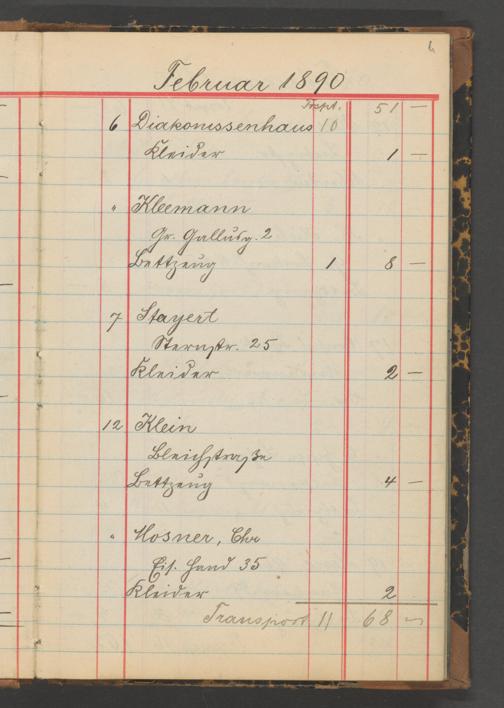 6
Februar 1890
Trspt. 51 —
6 Diakonissenhaus 10
Kleider 1 —
" Kleemann
Gr. Gallusg. 2
Bettzeug 1 8 —
7 Stayert
Sternstr. 25
Kleider 2 —
12 Klein
Bleichstraße
Bettzeug 4 —
" Mosner, Chr
Eis. Hand 35
Kleider 2
Transport 11 68 —